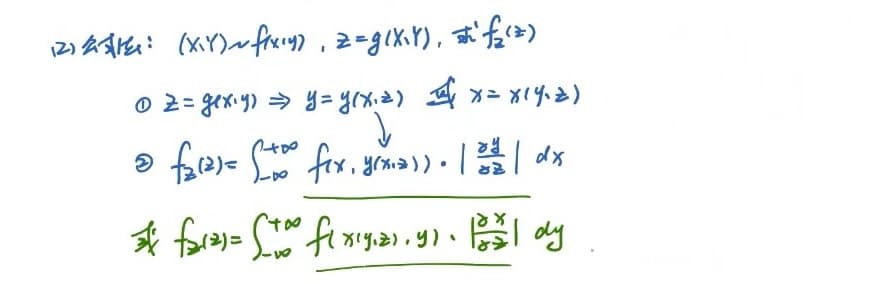 (2) 公式法: (X,Y)~f(x,y), Z=g(X,Y), 求 f_Z(z)
① z=g(x,y) ⇒ y=y(x,z) 或 x=x(y,z)
② f_Z(z)=∫_{-∞}^{+∞} f(x, y(x,z))·|∂y/∂z| dx
或 f_Z(z)=∫_{-∞}^{+∞} f(x(y,z), y)·|∂x/∂z| dy